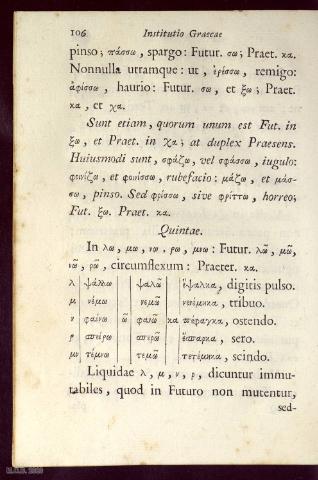 106 Institutio Graecae
pinso; πάσσω, spargo: Futur. σω; Praet. κα.
Nonnulla utramque: ut, ἐρίσσω, remigo:
ἀφίσσω, haurio: Futur. σω, et ξω; Praet.
κα, et χα.
Sunt etiam, quorum unum est Fut. in
ξω, et Praet. in χα; at duplex Praesens.
Huiusmodi sunt, σφάζω, vel σφάσσω, iugulo:
φοινίζω, et φοινίσσω, rubefacio: μάζω, et μάσ-
σω, pinso. Sed φρίσσω, sive φρίττω, horreo;
Fut. ξω. Praet. κα.
Quintae.
In λω, μω, νω, ρω, μνω: Futur. λῶ, μῶ,
νῶ, ρῶ, circumflexum: Praeter. κα.
λ ψάλλω ψαλῶ ἔψαλκα, digitis pulso.
μ νέμω νεμῶ νενέμηκα, tribuo.
ν φαίνω ῶ φανῶ κα πέφαγκα, ostendo.
ρ σπείρω σπερῶ ἔσπαρκα, sero.
μν τέμνω τεμῶ τετέμηκα, scindo.
Liquidae λ, μ, ν, ρ, dicuntur immu-
tabiles, quod in Futuro non mutentur,
sed-